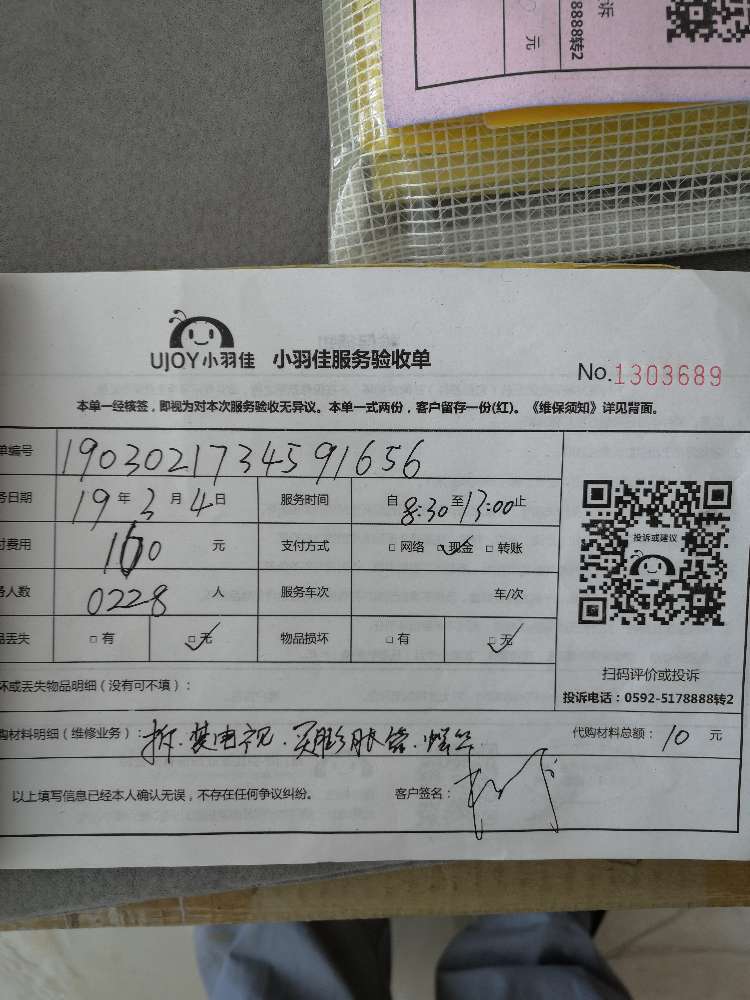 诉
8888转2
元
UJOY小羽佳 小羽佳服务验收单
No.1303689
本单一经核签,即视为对本次服务验收无异议。本单一式两份,客户留存一份(红)。《维保须知》详见背面。
单编号 1903021734591656
务日期 19年3月4日 服务时间 自8:30至13:00止
费用 160元 支付方式 □网络 □现金 □转账
人数 0228人 服务车次 车/次
丢失 □有 □无 物品损坏 □有 □无
投诉或建议
扫码评价或投诉
投诉电话:0592-5178888转2
坏或丢失物品明细(没有可不填):
购材料明细(维修业务):拆.装电视.买膨胀管. 代购材料总额:10元
以上填写信息已经本人确认无误,不存在任何争议纠纷。 客户签名: